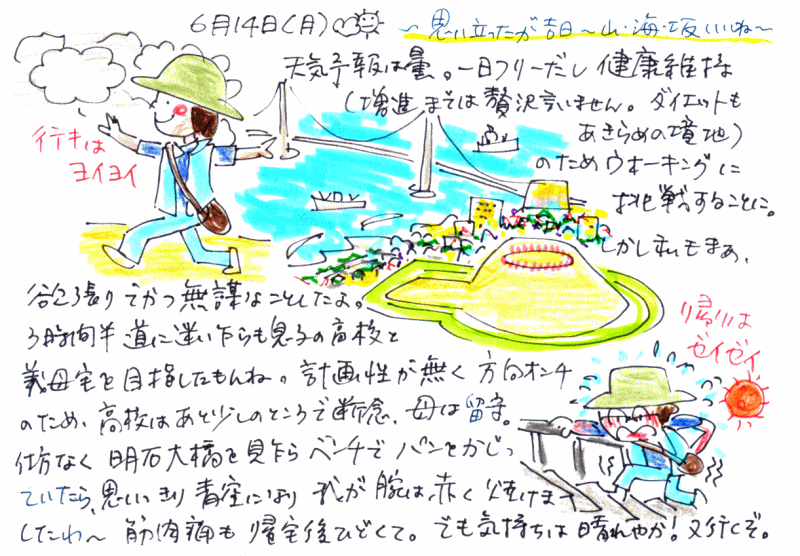 6月14日(月)
～思い立ったが吉日～山・海・坂いいね～
天気予報は曇。一日フリーだし健康維持
(増進までは贅沢言いません。ダイエットも
あきらめの境地)
のためウオーキングに
挑戦することに。
しかし私もまあ、
行きは
ヨイヨイ
欲張りでかつ無謀なことしたよ。
3時間半道に迷いながらも息子の高校と
義母宅を目指したもんね。計画性が無く方向オンチ
のため、高校はあと少しのところで断念、母は留守。
仕方なく明石大橋を見ながらベンチでパンをかじっ
ていたら、思いっきり青空になり我が腕は赤く焼けま
したわ～筋肉痛も帰宅後ひどくて。でも気持ちは晴れやか!又行くぞ。
帰りは
ゼイゼイ